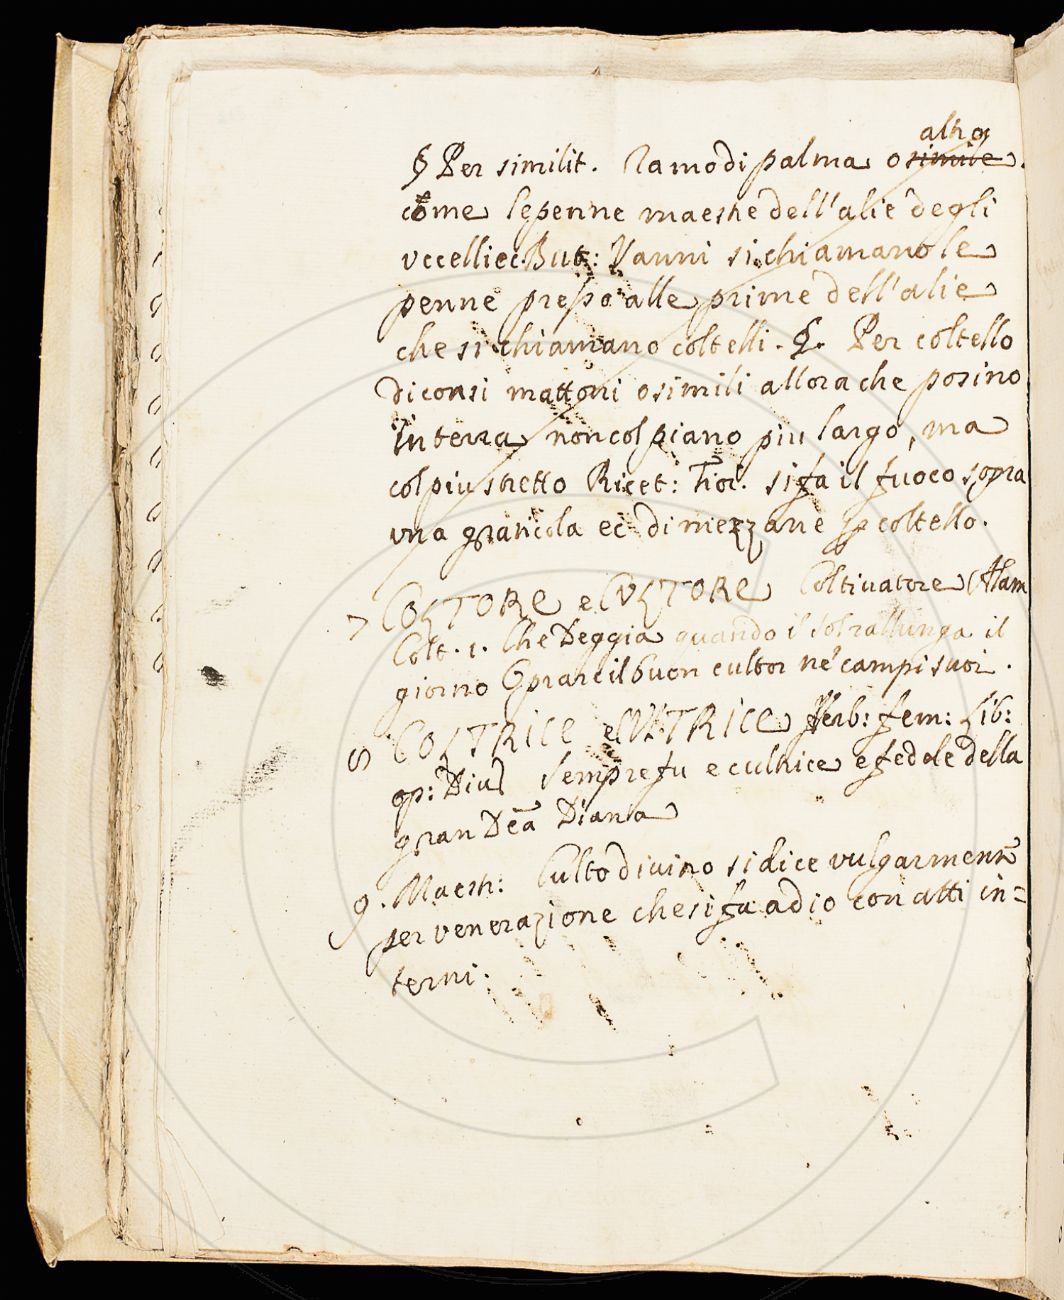 altro
§ Per similit. Ramo di palma o simile.
come le penne maestre dell'alie degli
uccelli ec. But: Vanni si chiamano le
penne presso alle prime dell'alie
che si chiamano coltelli. §. Per coltello
diconsi mattoni o simili allora che posino
in terra non col piano piu largo, ma
col piu stretto Ricet: Fior. si fa il fuoco sopra
una graticola ec di mezzane p coltello.
7 COLTORE e CULTORE Coltivatore Alam
Colt. 1. Che deggia quando il sol rallunga il
giorno Oprare il buon cultor ne' campi suoi.
8 COLTRICE e CULTRICE Verb: fem: Lib:
op: Div Sempre fu e cultrice e fedele della
gran Dea Diana
9. Maestr: Culto divino si dice vulgarmente
per venerazione che si fa a dio con atti in=
terni.